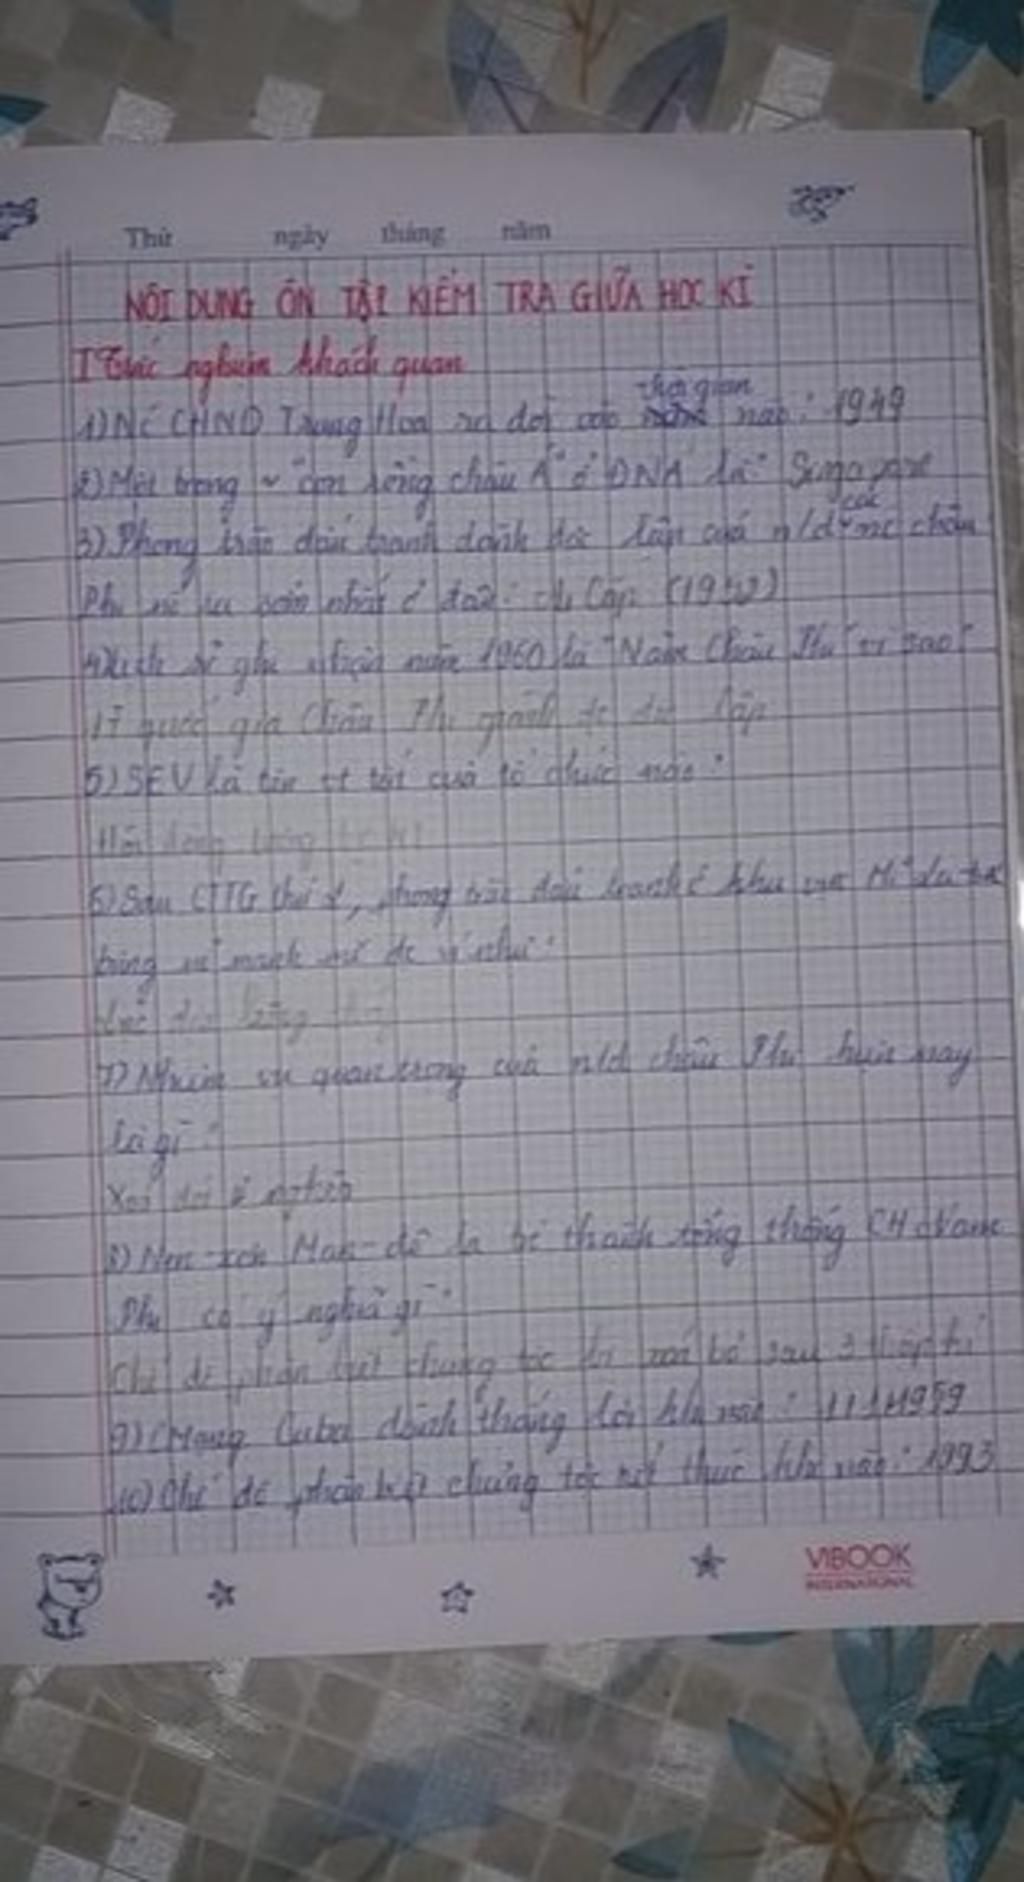 Thứ ngày tháng năm
NỘI DUNG ÔN TẬP KIỂM TRA GIỮA HỌC KÌ
I Trắc nghiệm khách quan
thời gian
1) Nc CHND Trung Hoa ra đời vào nào? 1949
2) Một trong ~ con rồng châu Á ở ĐNA là? Singapore
các
3) Phong trào đấu tranh dành độc lập của n/d nc châu
Phi nổ ra sớm nhất ở đâu? Ai Cập (1952)
4) Lịch sử ghi nhận năm 1960 là "Năm Châu Phi" vì sao?
17 quốc gia Châu Phi giành đc độc lập
5) SEV là tên vt tắt của tổ chức nào?
Hội đồng tương trợ
6) Sau CTTG thứ 2, phong trào đấu tranh ở khu vực Mĩ la tinh
bùng nổ mạnh mẽ đc ví như?
Lục địa bùng cháy
7) Nhiệm vụ quan trọng của n/d châu Phi hiện nay
là gì?
Xoá đói nghèo
8) Nen-xơn Man-đê-la trở thành tổng thống CH Nam
Phi có ý nghĩa gì?
Chế độ phân biệt chủng tộc bị xoá bỏ sau 3 thế kỉ
9) CMạng Cuba dành thắng lợi khi nào? 1/1/1959
10) Chế độ phân biệt chủng tộc kết thúc khi nào? 1993
VIBOOK
INTERNATIONAL